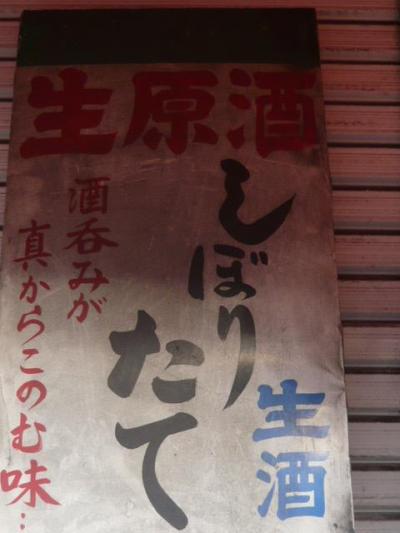 生原酒
しぼり
たて
生酒
酒呑みが
真からこのむ味…